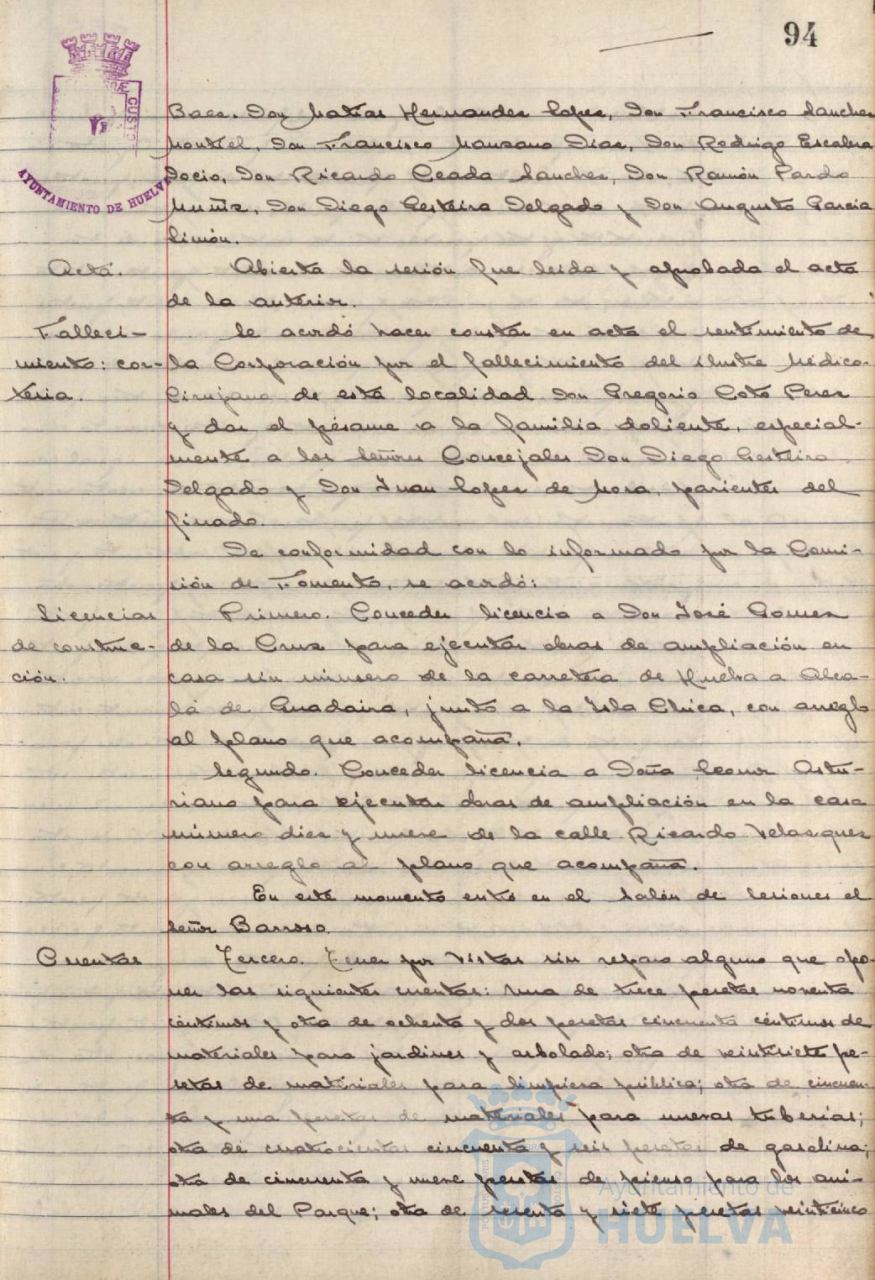 94
AYUNTAMIENTO DE HUELVA
CUSTO
Baes. Don Matias Hernandez Lopez, Don Francisco Sanchez
Montiel, Don Francisco Manzano Dias, Don Rodrigo Escalera
Socio, Don Ricardo Ceada Sanchez, Don Ramón Pardo
Muñiz, Don Diego Gesteira Delgado y Don Augusto Garcia
Limón.
Acta.
Abierta la sesión fue leida y aprobada el acta
de la anterior.
Falleci-
miento: cor-
teria.
Se acordó hacer constar en acta el sentimiento de
la Corporación por el fallecimiento del ilustre Médico-
Cirujano de esta localidad Don Gregorio Coto Perez
y dar el pésame a la familia doliente, especial-
mente a los Señores Concejales Don Diego Gesteira
Delgado y Don Juan Lopez de Mora, parientes del
finado.
De conformidad con lo informado por la Comi-
sión de Fomento, se acordó:
Licencias
de construc-
ción.
Primero. Conceder licencia a Don José Gomez
de la Cruz para ejecutar obras de ampliación en
casa sin número de la carretera de Huelva a Alca-
lá de Guadaira, junto a la Isla Chica, con arreglo
al plano que acompaña.
Segundo. Conceder licencia a Doña Leonor Astu-
riano para ejecutar obras de ampliación en la casa
número diez y nueve de la calle Ricardo Velazquez
con arreglo al plano que acompaña.
En este momento entró en el Salón de Sesiones el
Señor Barroso.
Cuentas
Tercero. Tener por vistas sin reparo alguno que opo-
ner las siguientes cuentas: Una de trece pesetas noventa
céntimos y otra de ochenta y dos pesetas cincuenta céntimos de
materiales para jardines y arbolado; otra de veintisiete pe-
setas de materiales para limpieza pública; otra de cincuen-
ta y una pesetas de materiales para nuevas tuberias;
otra de cuatrocientas cincuenta y seis pesetas de gasolina;
otra de cincuenta y nueve pesetas de pienso para los ani-
males del Parque; otra de sesenta y siete pesetas veinticinco
Ayuntamiento de
HUELVA